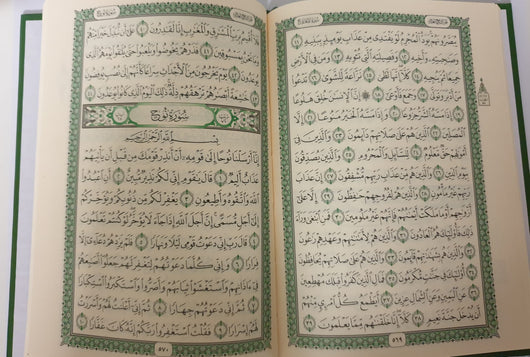 يُبَصَّرُونَهُمۡ يَوَدُّ ٱلۡمُجۡرِمُ لَوۡ يَفۡتَدِي مِنۡ عَذَابِ يَوۡمِئِذِۭ بِبَنِيهِ ١١
وَصَٰحِبَتِهِۦ وَأَخِيهِ ١٢ وَفَصِيلَتِهِ ٱلَّتِي تُـٔۡوِيهِ ١٣ وَمَن فِي ٱلۡأَرۡضِ
جَمِيعٗا ثُمَّ يُنجِيهِ ١٤ كَلَّآۖ إِنَّهَا لَظَىٰ ١٥ نَزَّاعَةٗ لِّلشَّوَىٰ ١٦ تَدۡعُواْ
مَنۡ أَدۡبَرَ وَتَوَلَّىٰ ١٧ وَجَمَعَ فَأَوۡعَىٰٓ ١٨ ۞ إِنَّ ٱلۡإِنسَٰنَ خُلِقَ هَلُوعًا
١٩ إِذَا مَسَّهُ ٱلشَّرُّ جَزُوعٗا ٢٠ وَإِذَا مَسَّهُ ٱلۡخَيۡرُ مَنُوعًا ٢١ إِلَّا
ٱلۡمُصَلِّينَ ٢٢ ٱلَّذِينَ هُمۡ عَلَىٰ صَلَاتِهِمۡ دَآئِمُونَ ٢٣ وَٱلَّذِينَ فِيٓ
أَمۡوَٰلِهِمۡ حَقّٞ مَّعۡلُومٞ ٢٤ لِّلسَّآئِلِ وَٱلۡمَحۡرُومِ ٢٥ وَٱلَّذِينَ يُصَدِّقُونَ
بِيَوۡمِ ٱلدِّينِ ٢٦ وَٱلَّذِينَ هُم مِّنۡ عَذَابِ رَبِّهِم مُّشۡفِقُونَ ٢٧ إِنَّ عَذَابَ
رَبِّهِمۡ غَيۡرُ مَأۡمُونٖ ٢٨ وَٱلَّذِينَ هُمۡ لِفُرُوجِهِمۡ حَٰفِظُونَ ٢٩ إِلَّا عَلَىٰٓ
أَزۡوَٰجِهِمۡ أَوۡ مَا مَلَكَتۡ أَيۡمَٰنُهُمۡ فَإِنَّهُمۡ غَيۡرُ مَلُومِينَ ٣٠ فَمَنِ ٱبۡتَغَىٰ وَرَآءَ
ذَٰلِكَ فَأُوْلَٰٓئِكَ هُمُ ٱلۡعَادُونَ ٣١ وَٱلَّذِينَ هُمۡ لِأَمَٰنَٰتِهِمۡ وَعَهۡدِهِمۡ رَٰعُونَ
٣٢ وَٱلَّذِينَ هُم بِشَهَٰدَٰتِهِمۡ قَآئِمُونَ ٣٣ وَٱلَّذِينَ هُمۡ عَلَىٰ صَلَاتِهِمۡ يُحَافِظُونَ
٣٤ أُوْلَٰٓئِكَ فِي جَنَّٰتٖ مُّكۡرَمُونَ ٣٥ فَمَالِ ٱلَّذِينَ كَفَرُواْ قِبَلَكَ مُهۡطِعِينَ
٣٦ عَنِ ٱلۡيَمِينِ وَعَنِ ٱلشِّمَالِ عِزِينَ ٣٧ أَيَطۡمَعُ كُلُّ ٱمۡرِيٕٖ مِّنۡهُمۡ
أَن يُدۡخَلَ جَنَّةَ نَعِيمٖ ٣٨ كَلَّآۖ إِنَّا خَلَقۡنَٰهُم مِّمَّا يَعۡلَمُونَ ٣٩
٥٦٩
فَلَآ أُقۡسِمُ بِرَبِّ ٱلۡمَشَٰرِقِ وَٱلۡمَغَٰرِبِ إِنَّا لَقَٰدِرُونَ ٤٠ عَلَىٰٓ أَن نُّبَدِّلَ
خَيۡرٗا مِّنۡهُمۡ وَمَا نَحۡنُ بِمَسۡبُوقِينَ ٤١ فَذَرۡهُمۡ يَخُوضُواْ وَيَلۡعَبُواْ حَتَّىٰ يُلَٰقُواْ يَوۡمَهُمُ ٱلَّذِي
يُوعَدُونَ ٤٢ يَوۡمَ يَخۡرُجُونَ مِنَ ٱلۡأَجۡدَاثِ سِرَاعٗا كَأَنَّهُمۡ إِلَىٰ نُصُبٖ يُوفِضُونَ
٤٣ خَٰشِعَةً أَبۡصَٰرُهُمۡ تَرۡهَقُهُمۡ ذِلَّةٞۚ ذَٰلِكَ ٱلۡيَوۡمُ ٱلَّذِي كَانُواْ يُوعَدُونَ ٤٤
سُورَةُ نُوحٍ
بِسۡمِ ٱللَّهِ ٱلرَّحۡمَٰنِ ٱلرَّحِيمِ
إِنَّآ أَرۡسَلۡنَا نُوحًا إِلَىٰ قَوۡمِهِۦٓ أَنۡ أَنذِرۡ قَوۡمَكَ مِن قَبۡلِ أَن يَأۡتِيَهُمۡ
عَذَابٌ أَلِيمٞ ١ قَالَ يَٰقَوۡمِ إِنِّي لَكُمۡ نَذِيرٞ مُّبِينٌ ٢ أَنِ ٱعۡبُدُواْ
ٱللَّهَ وَٱتَّقُوهُ وَأَطِيعُونِ ٣ يَغۡفِرۡ لَكُم مِّن ذُنُوبِكُمۡ وَيُؤَخِّرۡكُمۡ
إِلَىٰٓ أَجَلٖ مُّسَمًّىۚ إِنَّ أَجَلَ ٱللَّهِ إِذَا جَآءَ لَا يُؤَخَّرُۚ لَوۡ كُنتُمۡ تَعۡلَمُونَ
٤ قَالَ رَبِّ إِنِّي دَعَوۡتُ قَوۡمِي لَيۡلٗا وَنَهَارٗا ٥ فَلَمۡ يَزِدۡهُمۡ دُعَآءِيٓ إِلَّا
فِرَارٗا ٦ وَإِنِّي كُلَّمَا دَعَوۡتُهُمۡ لِتَغۡفِرَ لَهُمۡ جَعَلُوٓاْ أَصَٰبِعَهُمۡ
فِيٓ ءَاذَانِهِمۡ وَٱسۡتَغۡشَوۡاْ ثِيَابَهُمۡ وَأَصَرُّواْ وَٱسۡتَكۡبَرُواْ ٱسۡتِكۡبَارٗا
٧ ثُمَّ إِنِّي دَعَوۡتُهُمۡ جِهَارٗا ٨ ثُمَّ إِنِّيٓ أَعۡلَنتُ لَهُمۡ وَأَسۡرَرۡتُ
لَهُمۡ إِسۡرَارٗا ٩ فَقُلۡتُ ٱسۡتَغۡفِرُواْ رَبَّكُمۡ إِنَّهُۥ كَانَ غَفَّارٗا ١٠
٥٧٠